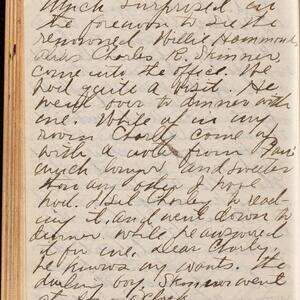 Much surprised in
the forenoon to see the
renowned Willie Hammond
alias Charles R. Skinner
come into the office. We
had quite a visit. He
went over to dinner with
me. While up in my
room Charley come up
with a note from
much longer and sweeter
than any other I have
had. I let Charley to read
ing it and went down to
dinner while he answered
it for me. Dear Charley,
he knows my wants. The
darling boy. Skinner went
at